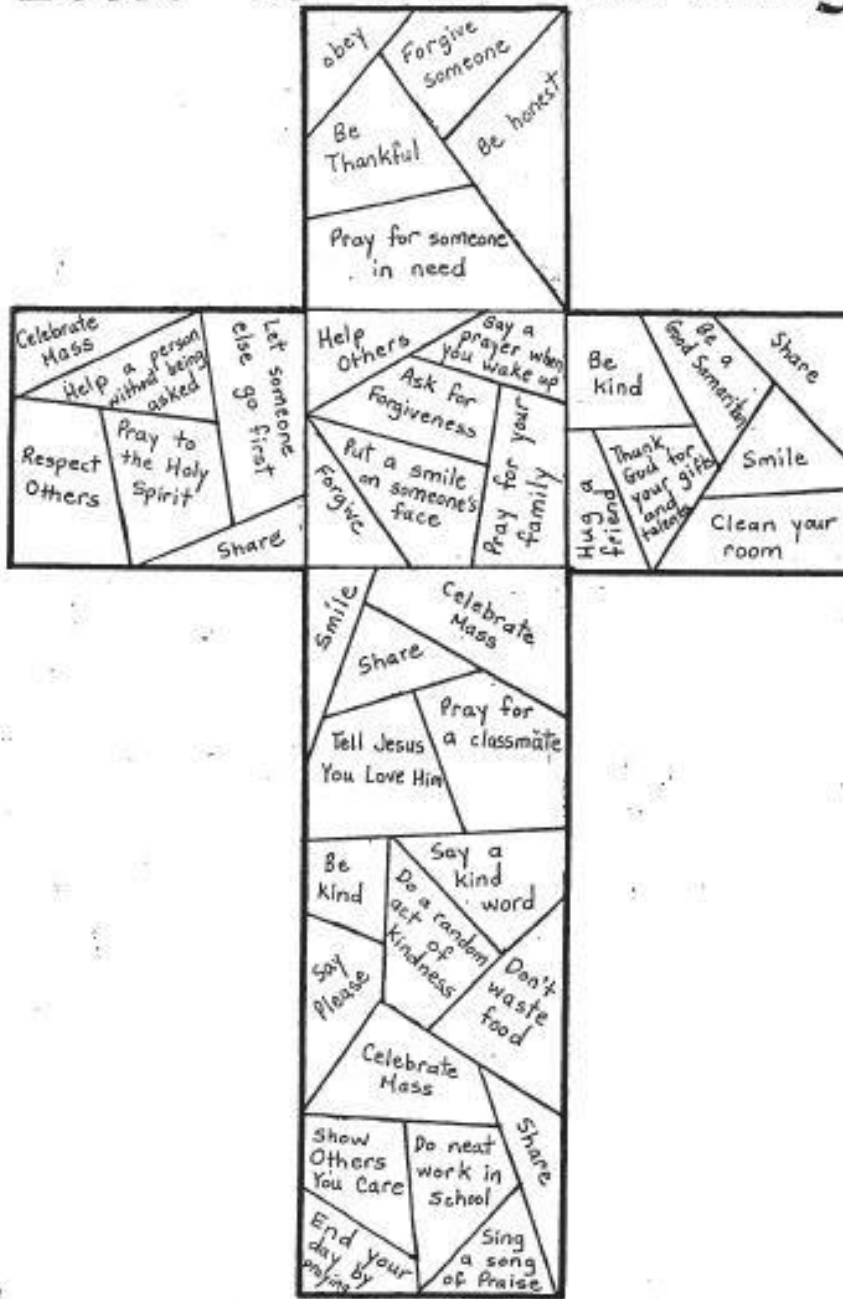 obey
Forgive
someone
Be honest
Be
Thankful
Pray for someone
in need
Celebrate
Mass
Help a person
without being
asked
Let someone
else go first
Respect
Others
Pray to
the Holy
Spirit
Share
Help
Others
Say a
prayer when
you wake up
Ask for
Forgiveness
Forgive
Put a smile
on someone's
face
Pray for your
family
Be
kind
Be a
Good Samaritan
Share
Hug a
friend
Thank
God for
your gifts
and
talents
Smile
Clean your
room
Smile
Celebrate
Mass
Share
Tell Jesus
You Love Him
Pray for
a classmate
Be
kind
Say a
kind
word
Do a random
act of
kindness
Say
Please
Don't
waste
food
Celebrate
Mass
Share
Show
Others
You Care
Do neat
work in
School
End your
day by
praying
Sing
a song
of Praise